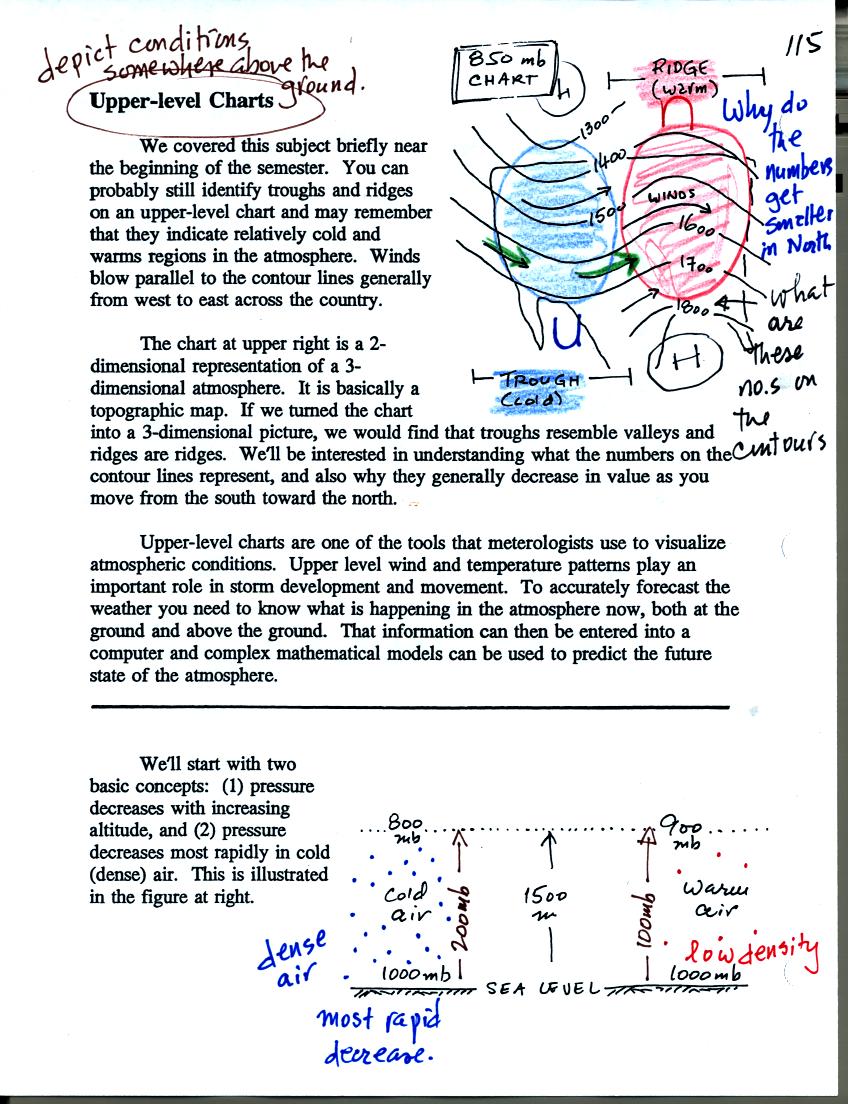 115
depict conditions
somewhere above the
ground.
Upper-level Charts
We covered this subject briefly near
the beginning of the semester. You can
probably still identify troughs and ridges
on an upper-level chart and may remember
that they indicate relatively cold and
warms regions in the atmosphere. Winds
blow parallel to the contour lines generally
from west to east across the country.
850 mb
CHART
H
RIDGE
(warm)
1300
1400
1500
WINDS
1600
1700
1800
U
H
TROUGH
(cold)
Why do
the
numbers
get
smaller
in North
what
are
these
no.s on
the
contours
The chart at upper right is a 2-
dimensional representation of a 3-
dimensional atmosphere. It is basically a
topographic map. If we turned the chart
into a 3-dimensional picture, we would find that troughs resemble valleys and
ridges are ridges. We'll be interested in understanding what the numbers on the
contour lines represent, and also why they generally decrease in value as you
move from the south toward the north.
Upper-level charts are one of the tools that meterologists use to visualize
atmospheric conditions. Upper level wind and temperature patterns play an
important role in storm development and movement. To accurately forecast the
weather you need to know what is happening in the atmosphere now, both at the
ground and above the ground. That information can then be entered into a
computer and complex mathematical models can be used to predict the future
state of the atmosphere.
We'll start with two
basic concepts: (1) pressure
decreases with increasing
altitude, and (2) pressure
decreases most rapidly in cold
(dense) air. This is illustrated
in the figure at right.
800
mb
900
mb
cold
air
200mb
1500
m
100mb
warm
air
dense
air
low density
1000mb
SEA LEVEL
1000mb
most rapid
decrease.